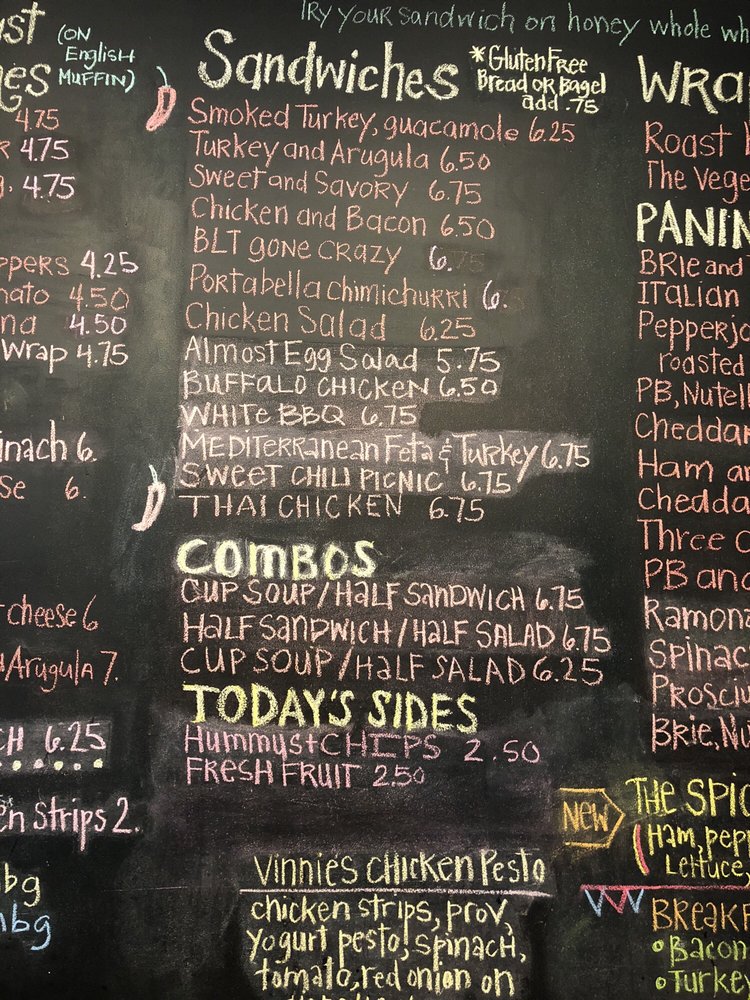 Try your sandwich on honey whole wh
st
(on
English
Muffin)
ges
4.75
R 4.75
g. 4.75
ppers 4.25
mato 4.50
na 4.50
Wrap 4.75
inach 6.
se 6.
cheese 6
Arugula 7.
CH 6.25
en Strips 2.
bg
mbg
Sandwiches
*Gluten Free
Bread or Bagel
add .75
Smoked Turkey, guacamole 6.25
Turkey and Arugula 6.50
Sweet and Savory 6.75
Chicken and Bacon 6.50
BLT gone crazy 6.75
Portabella chimichurri 6.
Chicken Salad 6.25
Almost Egg Salad 5.75
Buffalo Chicken 6.50
White BBQ 6.75
Mediterranean Feta & Turkey 6.75
Sweet Chili Picnic 6.75
Thai Chicken 6.75
COMBOS
Cup Soup/Half Sandwich 6.75
Half Sandwich/Half Salad 6.75
Cup Soup/Half Salad 6.25
TODAY'S SIDES
Hummus+Chips 2.50
Fresh Fruit 2.50
Vinnie's Chicken Pesto
chicken strips, prov,
yogurt pesto, spinach,
tomato, red onion on
Wra
Roast
The Vege
PANIN
Brie and
Italian
Pepperjo
roasted
PB, Nutell
Cheddar
Ham an
Chedda
Three c
PB and
Ramona
Spinac
Prosciu
Brie, Nu
NEW
The Spic
(Ham, pepp
Lettuce,
Breakf
Bacon
Turkey